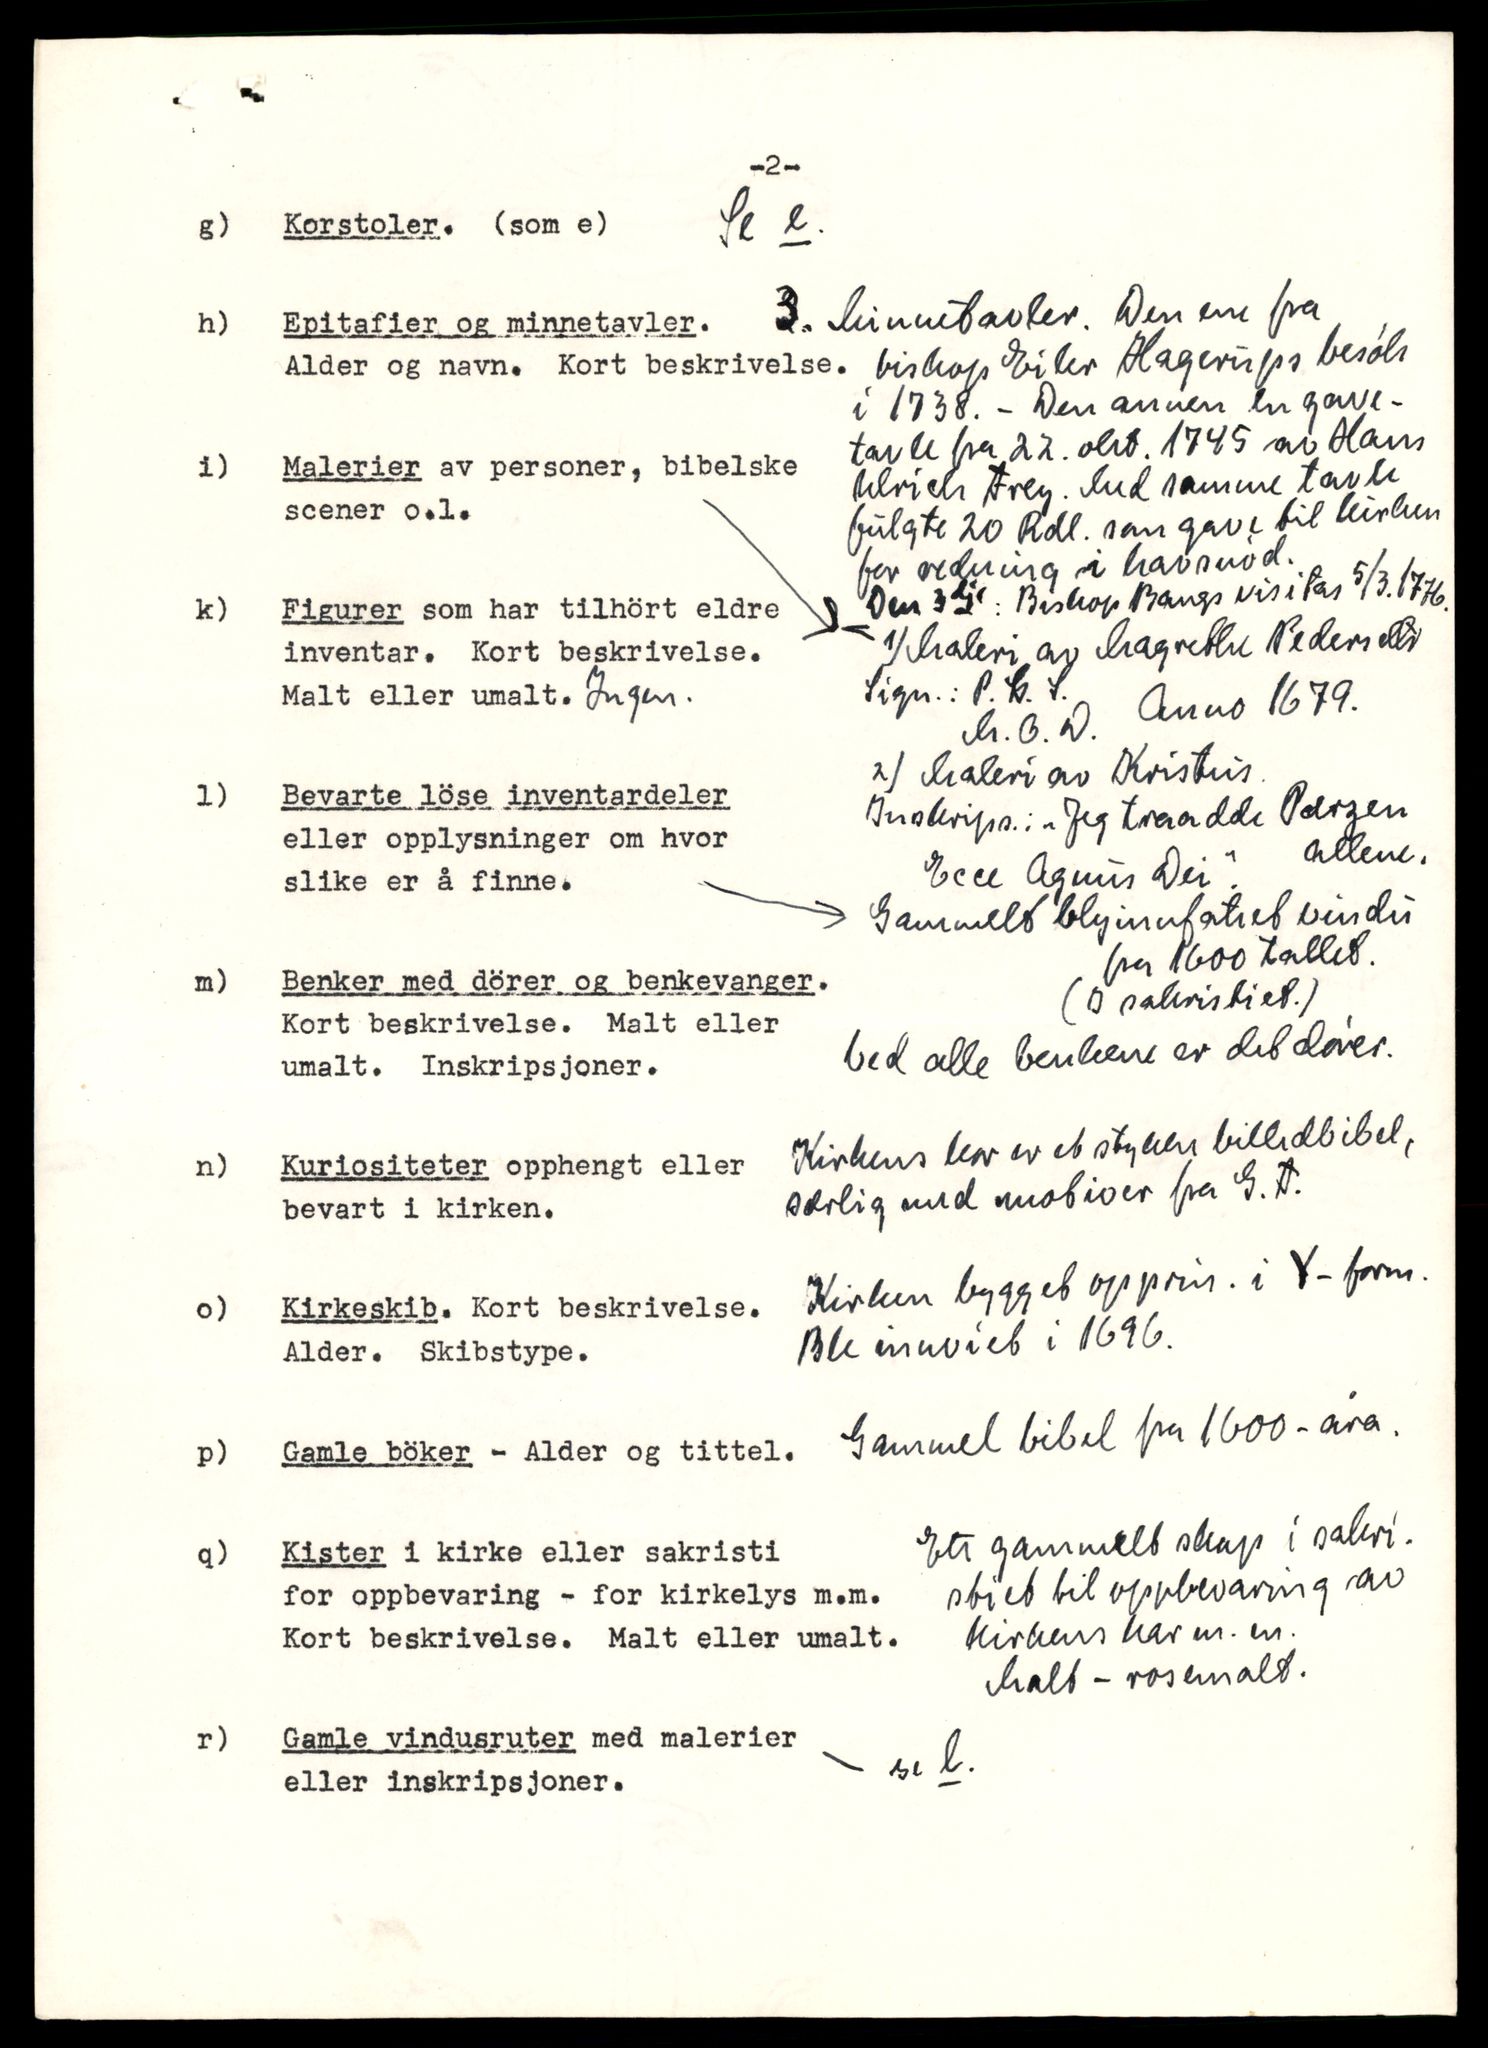 -2-
g) Korstoler. (som e) Se e.
h) Epitafier og minnetavler. 3. Minnetavler. Den ene fra
Alder og navn. Kort beskrivelse. biskop Eiler Hagerups besök
i 1738. - Den annen en gave-
tavle fra 22. okt. 1745 av Hans
Ulrich Frey. Med samme tavle
fulgte 20 Rdl. som gave til kirken
for redning i havsnöd.
Den 3dje: Biskop Bangs visitas 5/3.
i) Malerier av personer, bibelske
scener o.l.
1) Maleri av Magrethe
Sign.: P.
Anno 1679.
2) Maleri av Kristus.
Inskrips.: "Jeg traadde Perzen
allene.
Ecce Agnus Dei".
k) Figurer som har tilhört eldre
inventar. Kort beskrivelse.
Malt eller umalt. Ingen.
l) Bevarte löse inventardeler
eller opplysninger om hvor
slike er å finne.
Gammelt blyinnfattet vindu
fra 1600 tallet.
(I sakristiet.)
m) Benker med dörer og benkevanger.
Kort beskrivelse. Malt eller
umalt. Inskripsjoner. Ved alle benkene er det dörer.
n) Kuriositeter opphengt eller Kirkens kor er et stykke billedbibel,
bevart i kirken. særlig med motiver fra G.T.
o) Kirkeskib. Kort beskrivelse. Kirken bygget opprin. i Y-form.
Alder. Skibstype. Ble innviet i 1696.
p) Gamle böker - Alder og tittel. Gammel bibel fra 1600-åra.
q) Kister i kirke eller sakristi Ett gammelt skap i sakri-
for oppbevaring - for kirkelys m.m. stiet til oppbevaring av
Kort beskrivelse. Malt eller umalt. kirkens kar m.m.
Malt - rosemalt.
r) Gamle vindusruter med malerier
eller inskripsjoner. - se l.